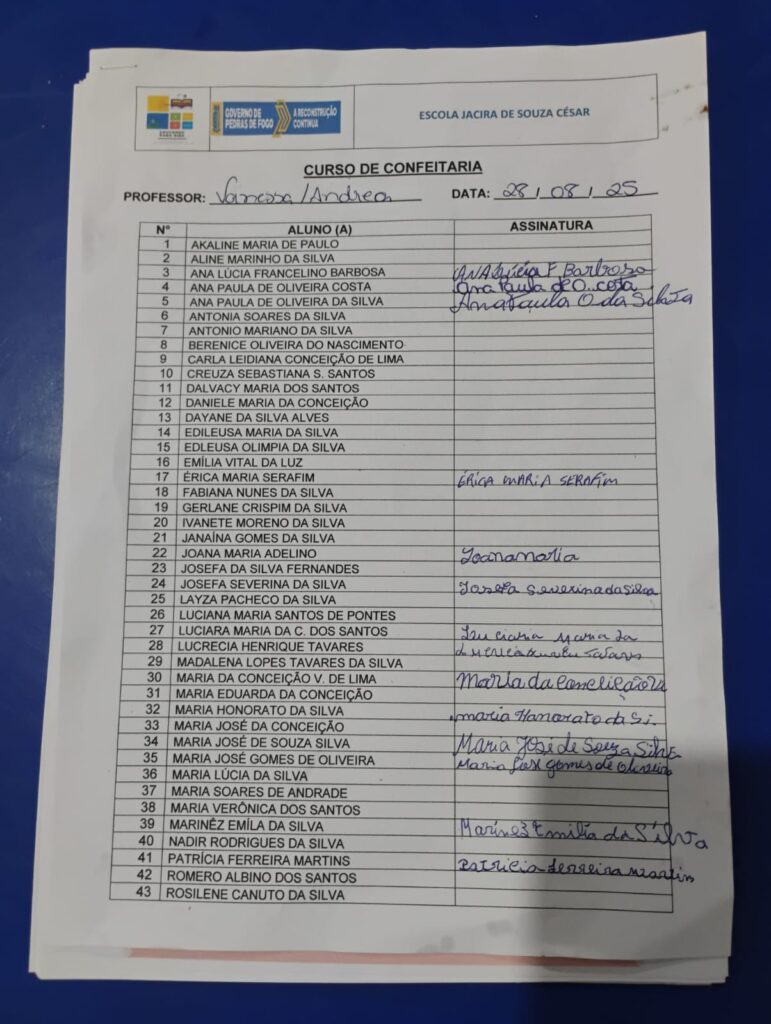 GOVERNO DE
PEDRAS DE FOGO
A RECONSTRUÇÃO
CONTINUA
ESCOLA JACIRA DE SOUZA CÉSAR
CURSO DE CONFEITARIA
PROFESSOR: Vanessa / Andrea DATA: 28 / 08 / 25
Nº ALUNO (A) ASSINATURA
1 AKALINE MARIA DE PAULO
2 ALINE MARINHO DA SILVA
3 ANA LÚCIA FRANCELINO BARBOSA ANA Lúcia F Barbosa
4 ANA PAULA DE OLIVEIRA COSTA Ana Paula de O. costa
5 ANA PAULA DE OLIVEIRA DA SILVA Ana Paula O da Silva
6 ANTONIA SOARES DA SILVA
7 ANTONIO MARIANO DA SILVA
8 BERENICE OLIVEIRA DO NASCIMENTO
9 CARLA LEIDIANA CONCEIÇÃO DE LIMA
10 CREUZA SEBASTIANA S. SANTOS
11 DALVACY MARIA DOS SANTOS
12 DANIELE MARIA DA CONCEIÇÃO
13 DAYANE DA SILVA ALVES
14 EDILEUSA MARIA DA SILVA
15 EDLEUSA OLIMPIA DA SILVA
16 EMÍLIA VITAL DA LUZ
17 ÉRICA MARIA SERAFIM ÉRICA MARIA SERAFIM
18 FABIANA NUNES DA SILVA
19 GERLANE CRISPIM DA SILVA
20 IVANETE MORENO DA SILVA
21 JANAÍNA GOMES DA SILVA
22 JOANA MARIA ADELINO Joana maria
23 JOSEFA DA SILVA FERNANDES
24 JOSEFA SEVERINA DA SILVA Josefa Severina da Silva
25 LAYZA PACHECO DA SILVA
26 LUCIANA MARIA SANTOS DE PONTES
27 LUCIARA MARIA DA C. DOS SANTOS Luciaria Maria da
28 LUCRECIA HENRIQUE TAVARES
29 MADALENA LOPES TAVARES DA SILVA
30 MARIA DA CONCEIÇÃO V. DE LIMA Maria da Conceição V
31 MARIA EDUARDA DA CONCEIÇÃO
32 MARIA HONORATO DA SILVA maria Honorato da Si.
33 MARIA JOSÉ DA CONCEIÇÃO
34 MARIA JOSÉ DE SOUZA SILVA Maria José de Souza Silva
35 MARIA JOSÉ GOMES DE OLIVEIRA Maria José gomes de oliveira
36 MARIA LÚCIA DA SILVA
37 MARIA SOARES DE ANDRADE
38 MARIA VERÔNICA DOS SANTOS
39 MARINÊZ EMÍLA DA SILVA Marinêz Emilia da Silva
40 NADIR RODRIGUES DA SILVA
41 PATRÍCIA FERREIRA MARTINS Patricia Ferreira Martins
42 ROMERO ALBINO DOS SANTOS
43 ROSILENE CANUTO DA SILVA